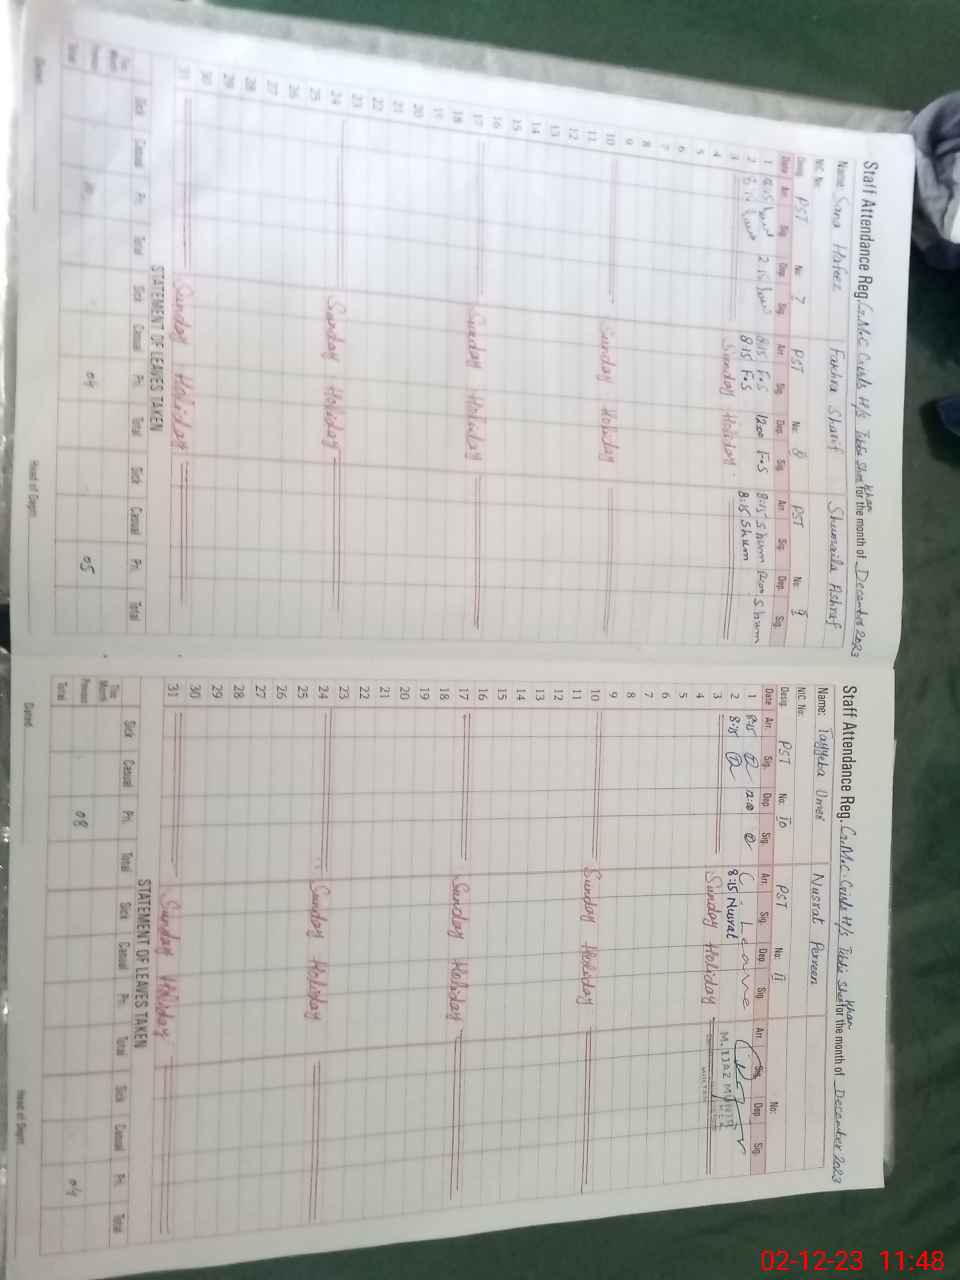 Staff Attendance Reg. G.M.C Girls H/s Tibba Sher Khan for the month of December 2023
Name: Sana Hafeez Fakhra Sharif Shumaila Ashraf
NIC No:
Desig. PST No: 7 PST No: 8 PST No: 9
Date Arr. Sig. Dep. Sig. Arr. Sig. Dep. Sig. Arr. Sig. Dep. Sig.
1 8:15 2:15 8:15 F.S 12:00 F.S 8:15 Shum Shum
2 8:15 F.S 8:15 Shum
3 Sunday Holiday
4
5
6
7
8
9
10 Sunday Holiday
11
12
13
14
15
16
17 Sunday Holiday
18
19
20
21
22
23
24 Sunday Holiday
25
26
27
28
29
30
31 Sunday Holiday
STATEMENT OF LEAVES TAKEN
Sick Casual Pri. Total Sick Casual Pri. Total Sick Casual Pri. Total
This Month
Previous 04 05
Total
Dated Head of Deptt.
Staff Attendance Reg. G.M.C Girls H/s Tibba Sher Khan for the month of December 2023
Name: Tayyeba Umer Nusrat Perveen
NIC No:
Desig. PST No: 10 PST No: 11 No:
Date Arr. Sig. Dep. Sig. Arr. Sig. Dep. Sig. Arr. Sig. Dep. Sig.
1 8:15 12:00 C. Leave
2 8:15 8:15 Nusrat M. IJAZ MUNIR
3 Sunday Holiday MULTAN
4
5
6
7
8
9
10 Sunday Holiday
11
12
13
14
15
16
17 Sunday Holiday
18
19
20
21
22
23
24 Sunday Holiday
25
26
27
28
29
30
31 Sunday Holiday
STATEMENT OF LEAVES TAKEN
Sick Casual Pri. Total Sick Casual Pri. Total Sick Casual Pri. Total
This Month
Previous 08 04
Total
Dated Head of Deptt.
02-12-23 11:48